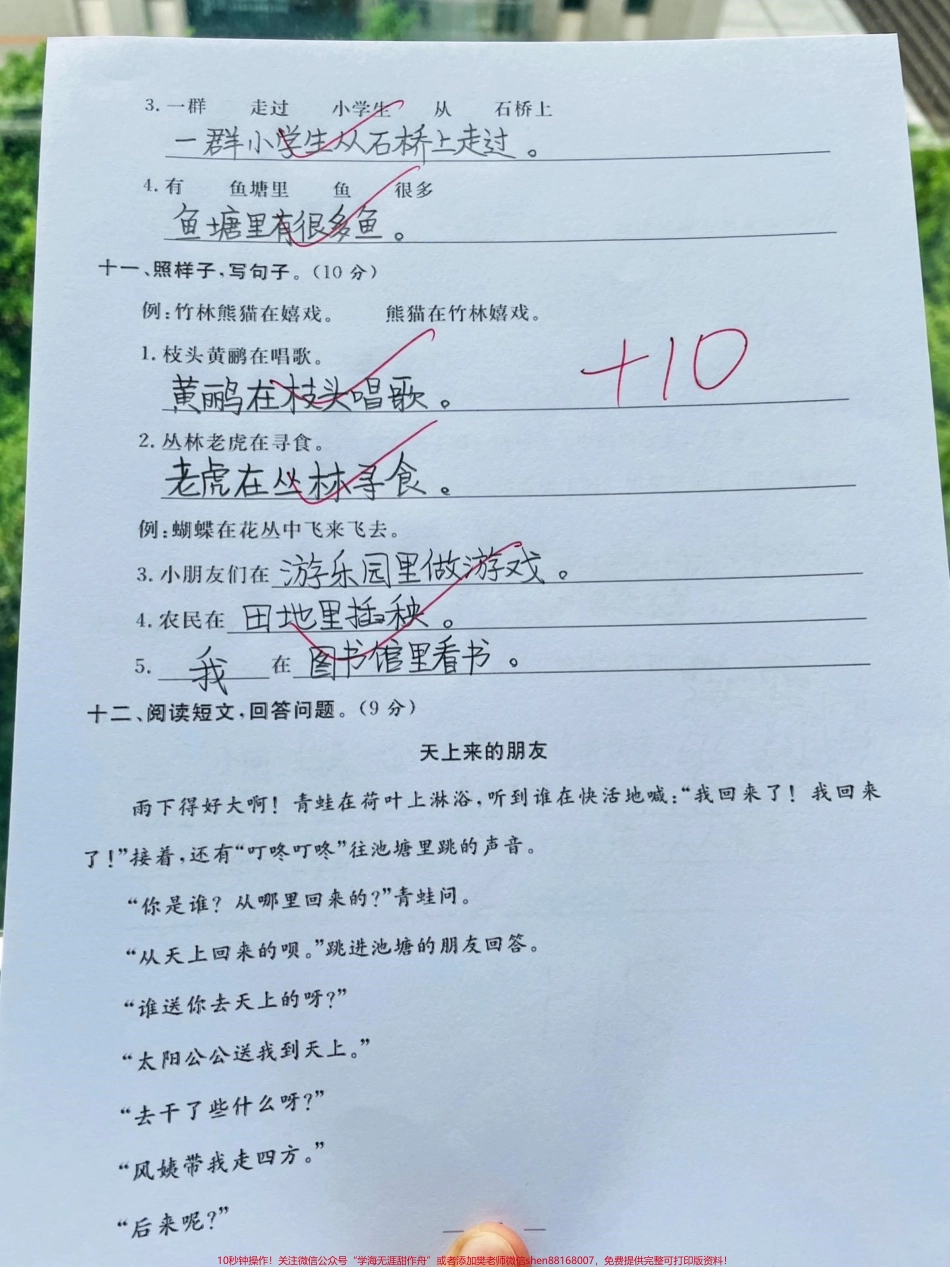 3. 一群 走过 小学生 从 石桥上
一群小学生从石桥上走过。
4. 有 鱼塘里 鱼 很多
鱼塘里有很多鱼。
十一、照样子，写句子。（10 分）
例：竹林熊猫在嬉戏。 熊猫在竹林嬉戏。
1. 枝头黄鹂在唱歌。
+10
黄鹂在枝头唱歌。
2. 丛林老虎在寻食。
老虎在丛林寻食。
例：蝴蝶在花丛中飞来飞去。
3. 小朋友们在 游乐园里做游戏。
4. 农民在 田地里插秧。
5. 我 在 图书馆里看书。
十二、阅读短文，回答问题。（9 分）
天上来的朋友
雨下得好大啊！青蛙在荷叶上淋浴，听到谁在快活地喊：“我回来了！我回来
了！”接着，还有“叮咚叮咚”往池塘里跳的声音。
“你是谁？从哪里回来的？”青蛙问。
“从天上回来的呗。”跳进池塘的朋友回答。
“谁送你去天上的呀？”
“太阳公公送我到天上。”
“去干了些什么呀？”
“风姨带我走四方。”
“后来呢？”
10秒钟操作！关注微信公众号“学海无涯甜作舟”或者添加樊老师微信shen88168007，免费提供完整可打印版资料！